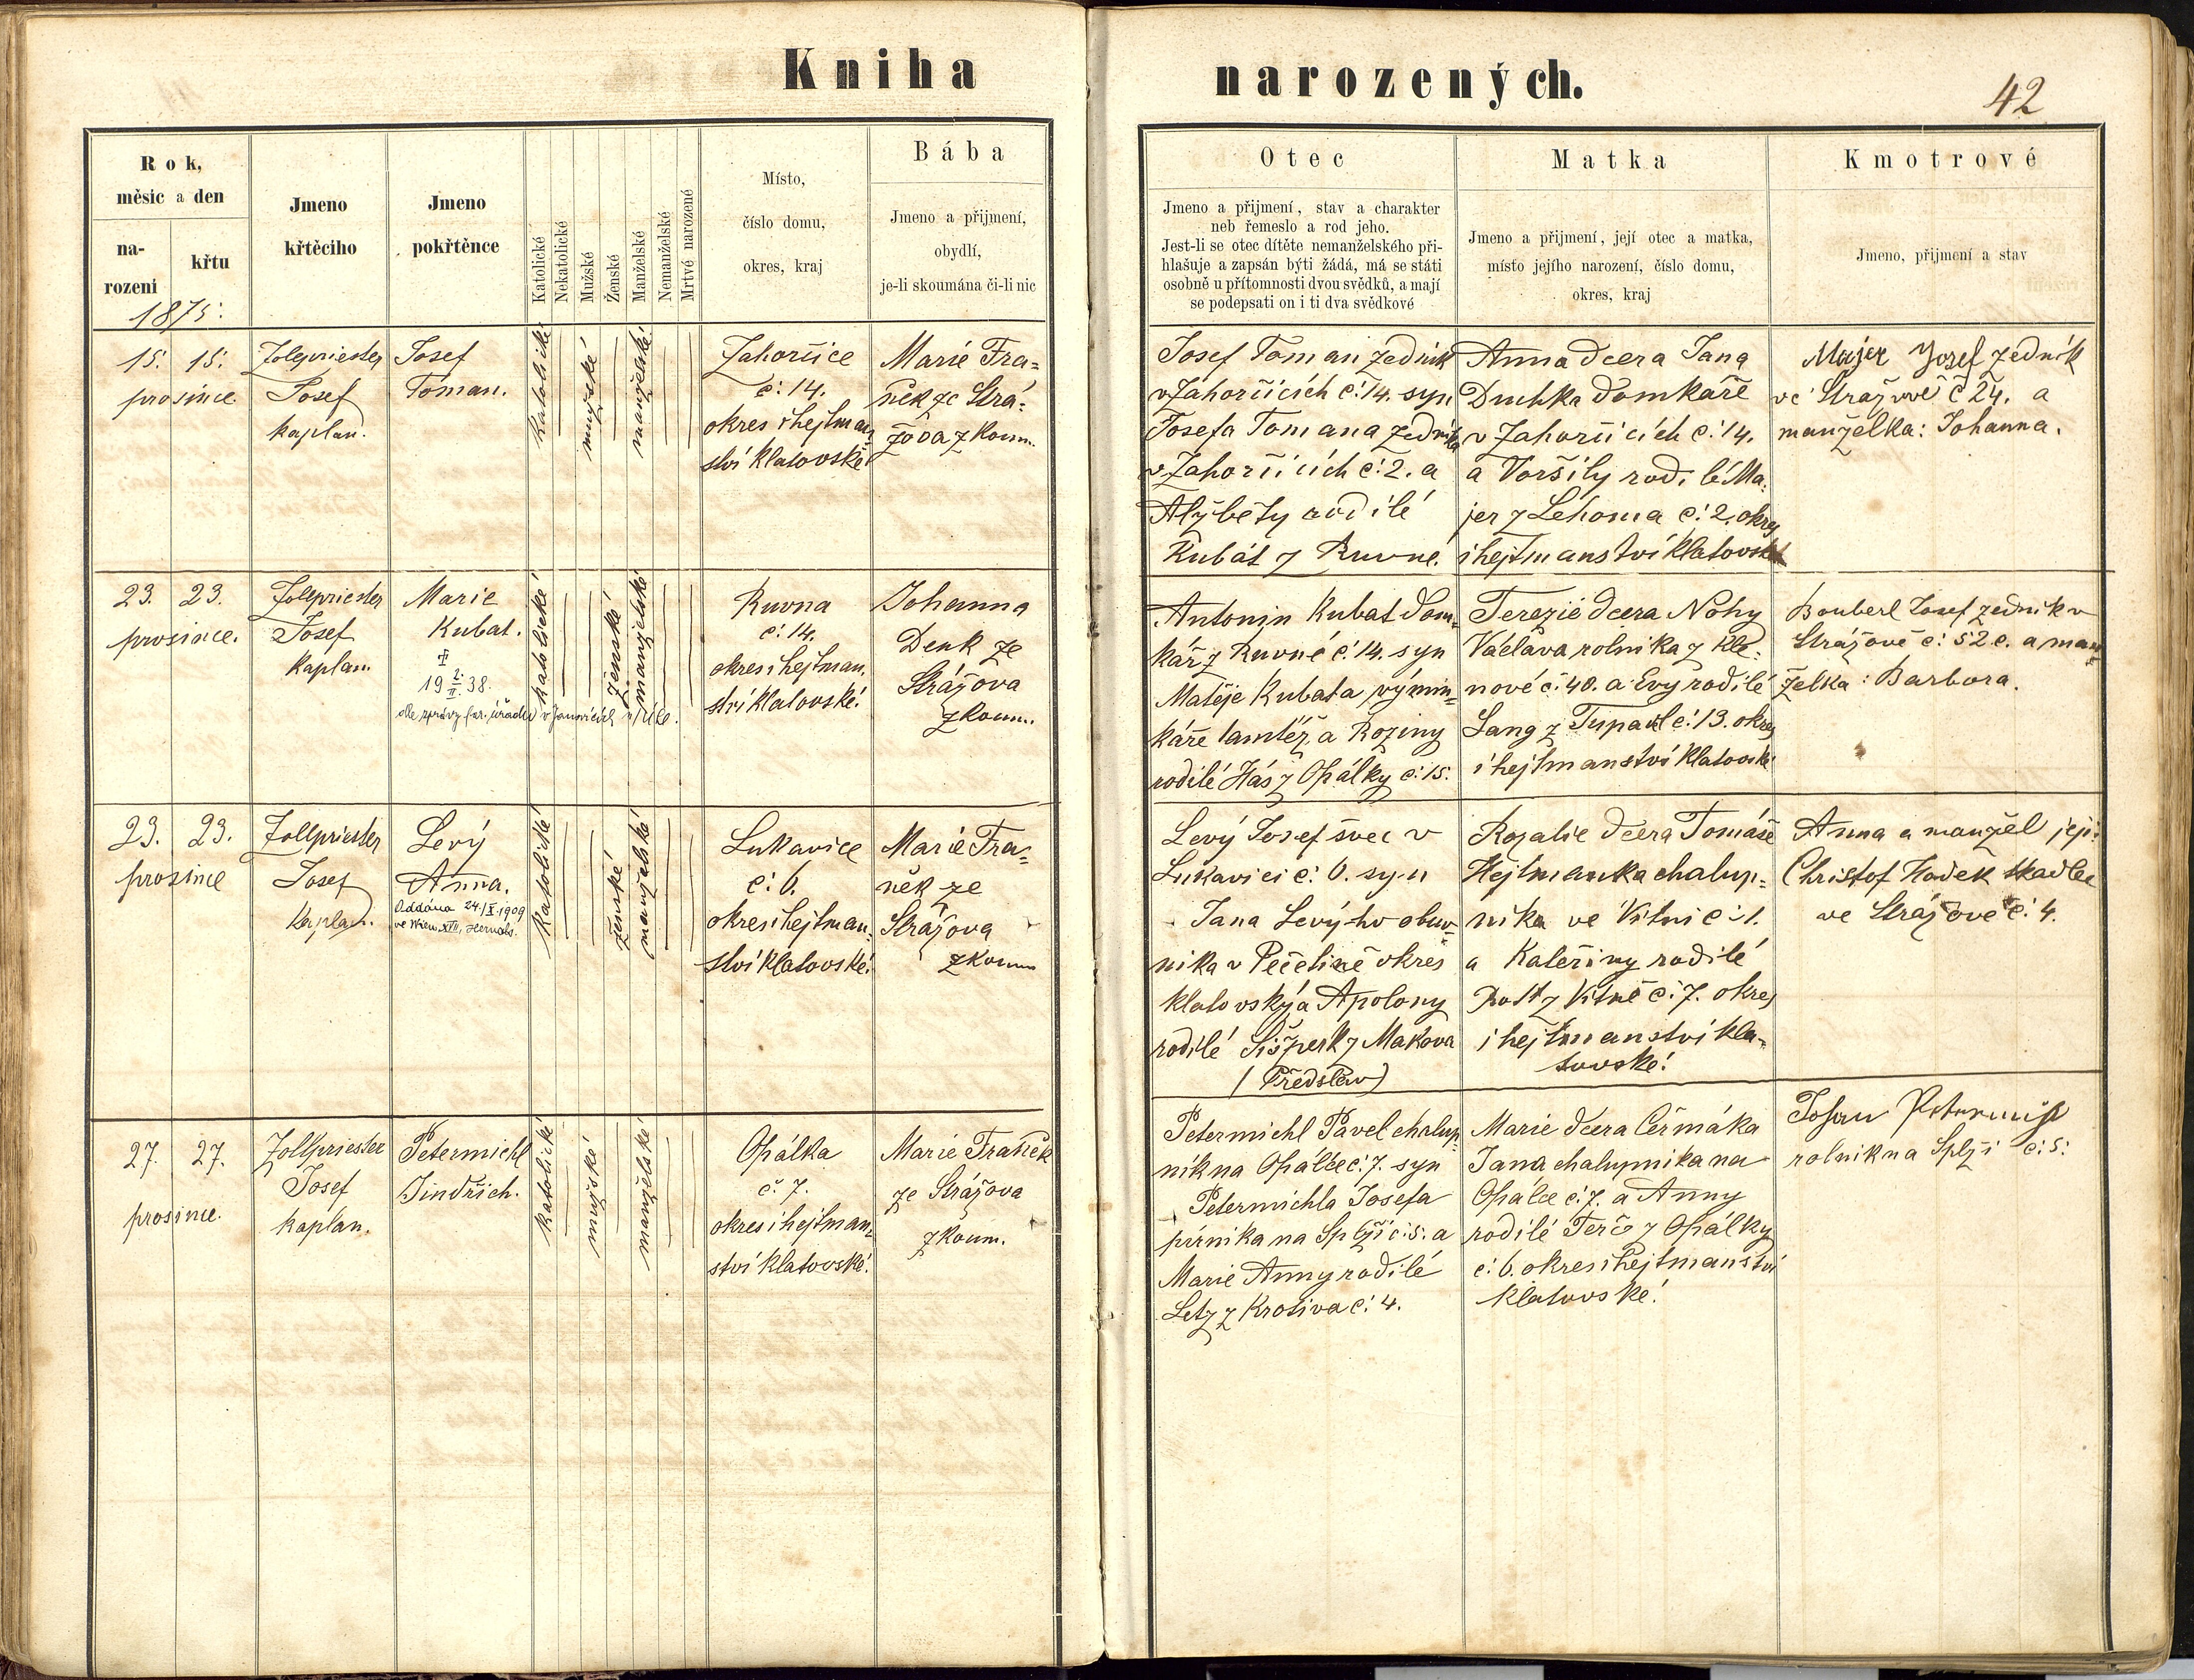 Kniha narozených.
42
Rok,
měsíc a den
na-
rozeni
křtu
Jmeno
křtěcího
Jmeno
pokřtěnce
Katolické
Nekatolické
Mužské
Ženské
Manželské
Nemanželské
Mrtvé narozené
Místo,
číslo domu,
okres, kraj
Bába
Jmeno a přijmení,
obydlí,
je-li skoumána či-li nic
Otec
Jmeno a přijmení, stav a charakter
neb řemeslo a rod jeho.
Jest-li se otec dítěte nemanželského při-
hlašuje a zapsán býti žádá, má se státi
osobně u přítomnosti dvou svědků, a mají
se podepsati on i ti dva svědkové
Matka
Jmeno a přijmení, její otec a matka,
místo jejího narození, číslo domu,
okres, kraj
Kmotrové
Jmeno, přijmení a stav
1875:
15. 15.
prosince
Zollpriester
Josef
kaplan.
Josef
Toman.
katolické
mužské
manželské
Zahorčice
č: 14.
okres i hejtman
ství klatovské
Marie Fra-
něk ze Strá-
žova zkoum.
Josef Toman zedník
v Zahorčicích č: 14. syn
Josefa Tomana zedníka
v Zahorčicích č: 2. a
Alžběty rodilé
Kubát z Ruvné.
Anna dcera Jana
Duchka domkaře
v Zahorčicích č: 14.
a Voršily rodilé Ma-
jer z Lehoma č: 2. okres
i hejtmanství klatovské
Majer Josef zedník
ve Strážově č 24. a
manželka: Johanna.
23. 23.
prosince.
Zollpriester
Josef
kaplan.
Marie
Kubat.
19 2./II. 38.
dle zprávy far. úřadu v Janovicích n/Úhl.
katolické
ženské
manželské
Ruvna
č: 14.
okres i hejtman-
ství klatovské.
Johanna
Denk ze
Strážova
zkoum.
Antonin Kubat dom-
kář z Ruvné č: 14. syn
Matěje Kubata výmin-
káře tamtéž a Roziny
rodilé Hás z Opálky č: 15.
Terezie dcera Nohy
Václava rolnika z Kle-
nové č. 40. a Evy rodilé
Lang z Tupadl č: 13. okres
i hejtmanství klatovské
Bouberl Josef zednik v
Strážově č: 52 c. a man-
želka: Barbora.
23. 23.
prosince
Zollpriester
Josef
kaplan.
Levý
Anna.
Oddána 24./X. 1909
ve Wien, XVII, Hernals.
katolické
ženské
manželské
Lukavice
č: 6.
okres i hejtman-
ství klatovské.
Marie Fra-
něk ze
Strážova
zkoum
Levý Josef švec v
Lukavici č: 6. syn
Jana Levýho obuv-
nika v Pečetíně okres
klatovský a Apolony
rodilé Šišperk z Makova
(Předslav)
Rozalie dcera Tomáše
Hejtmanka chalup-
nika ve Vitni č: 1.
a Kateřiny rodilé
z Vitně č: 7. okres
i hejtmanství kla-
tovské.
Anna a manžel její
Christof Hodek tkadlec
ve Strážově č. 4.
27. 27.
prosince.
Zollpriester
Josef
kaplan.
Petermichl
Jindřich.
katolické
mužské
manželské
Opálka
č. 7.
okres i hejtman-
ství klatovské.
Marie Franěk
ze Strážova
zkoum.
Petermichl Pavel chalup-
ník na Opálce č: 7. syn
Petermichla Josefa
na Splži č: 5. a
Marie Anny rodilé
Letz z Krotiva č: 4.
Marie dcera Čermáka
Jana chalupnika na
Opálce č: 7. a Anny
rodilé Terč z Opálky
č: 6. okres i hejtmanství
klatovské.
Johann Petermichl
rolnik na Splži č: 5.